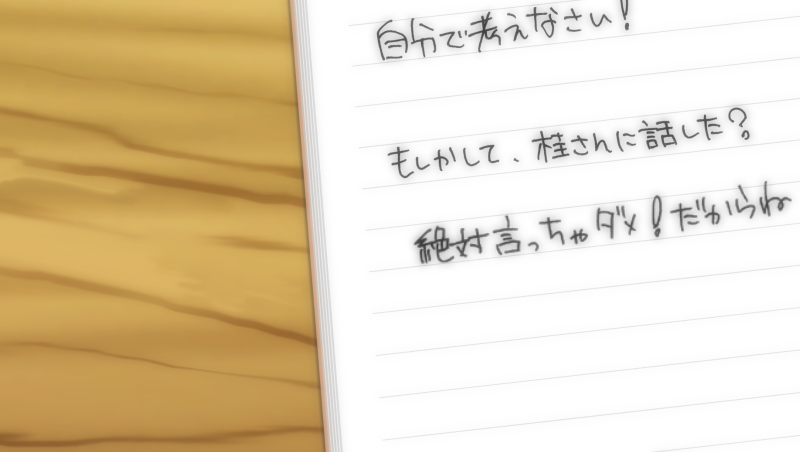 自分で考えなさい!
もしかして、桂さんに話した?
絶対言っちゃダメ!だからね